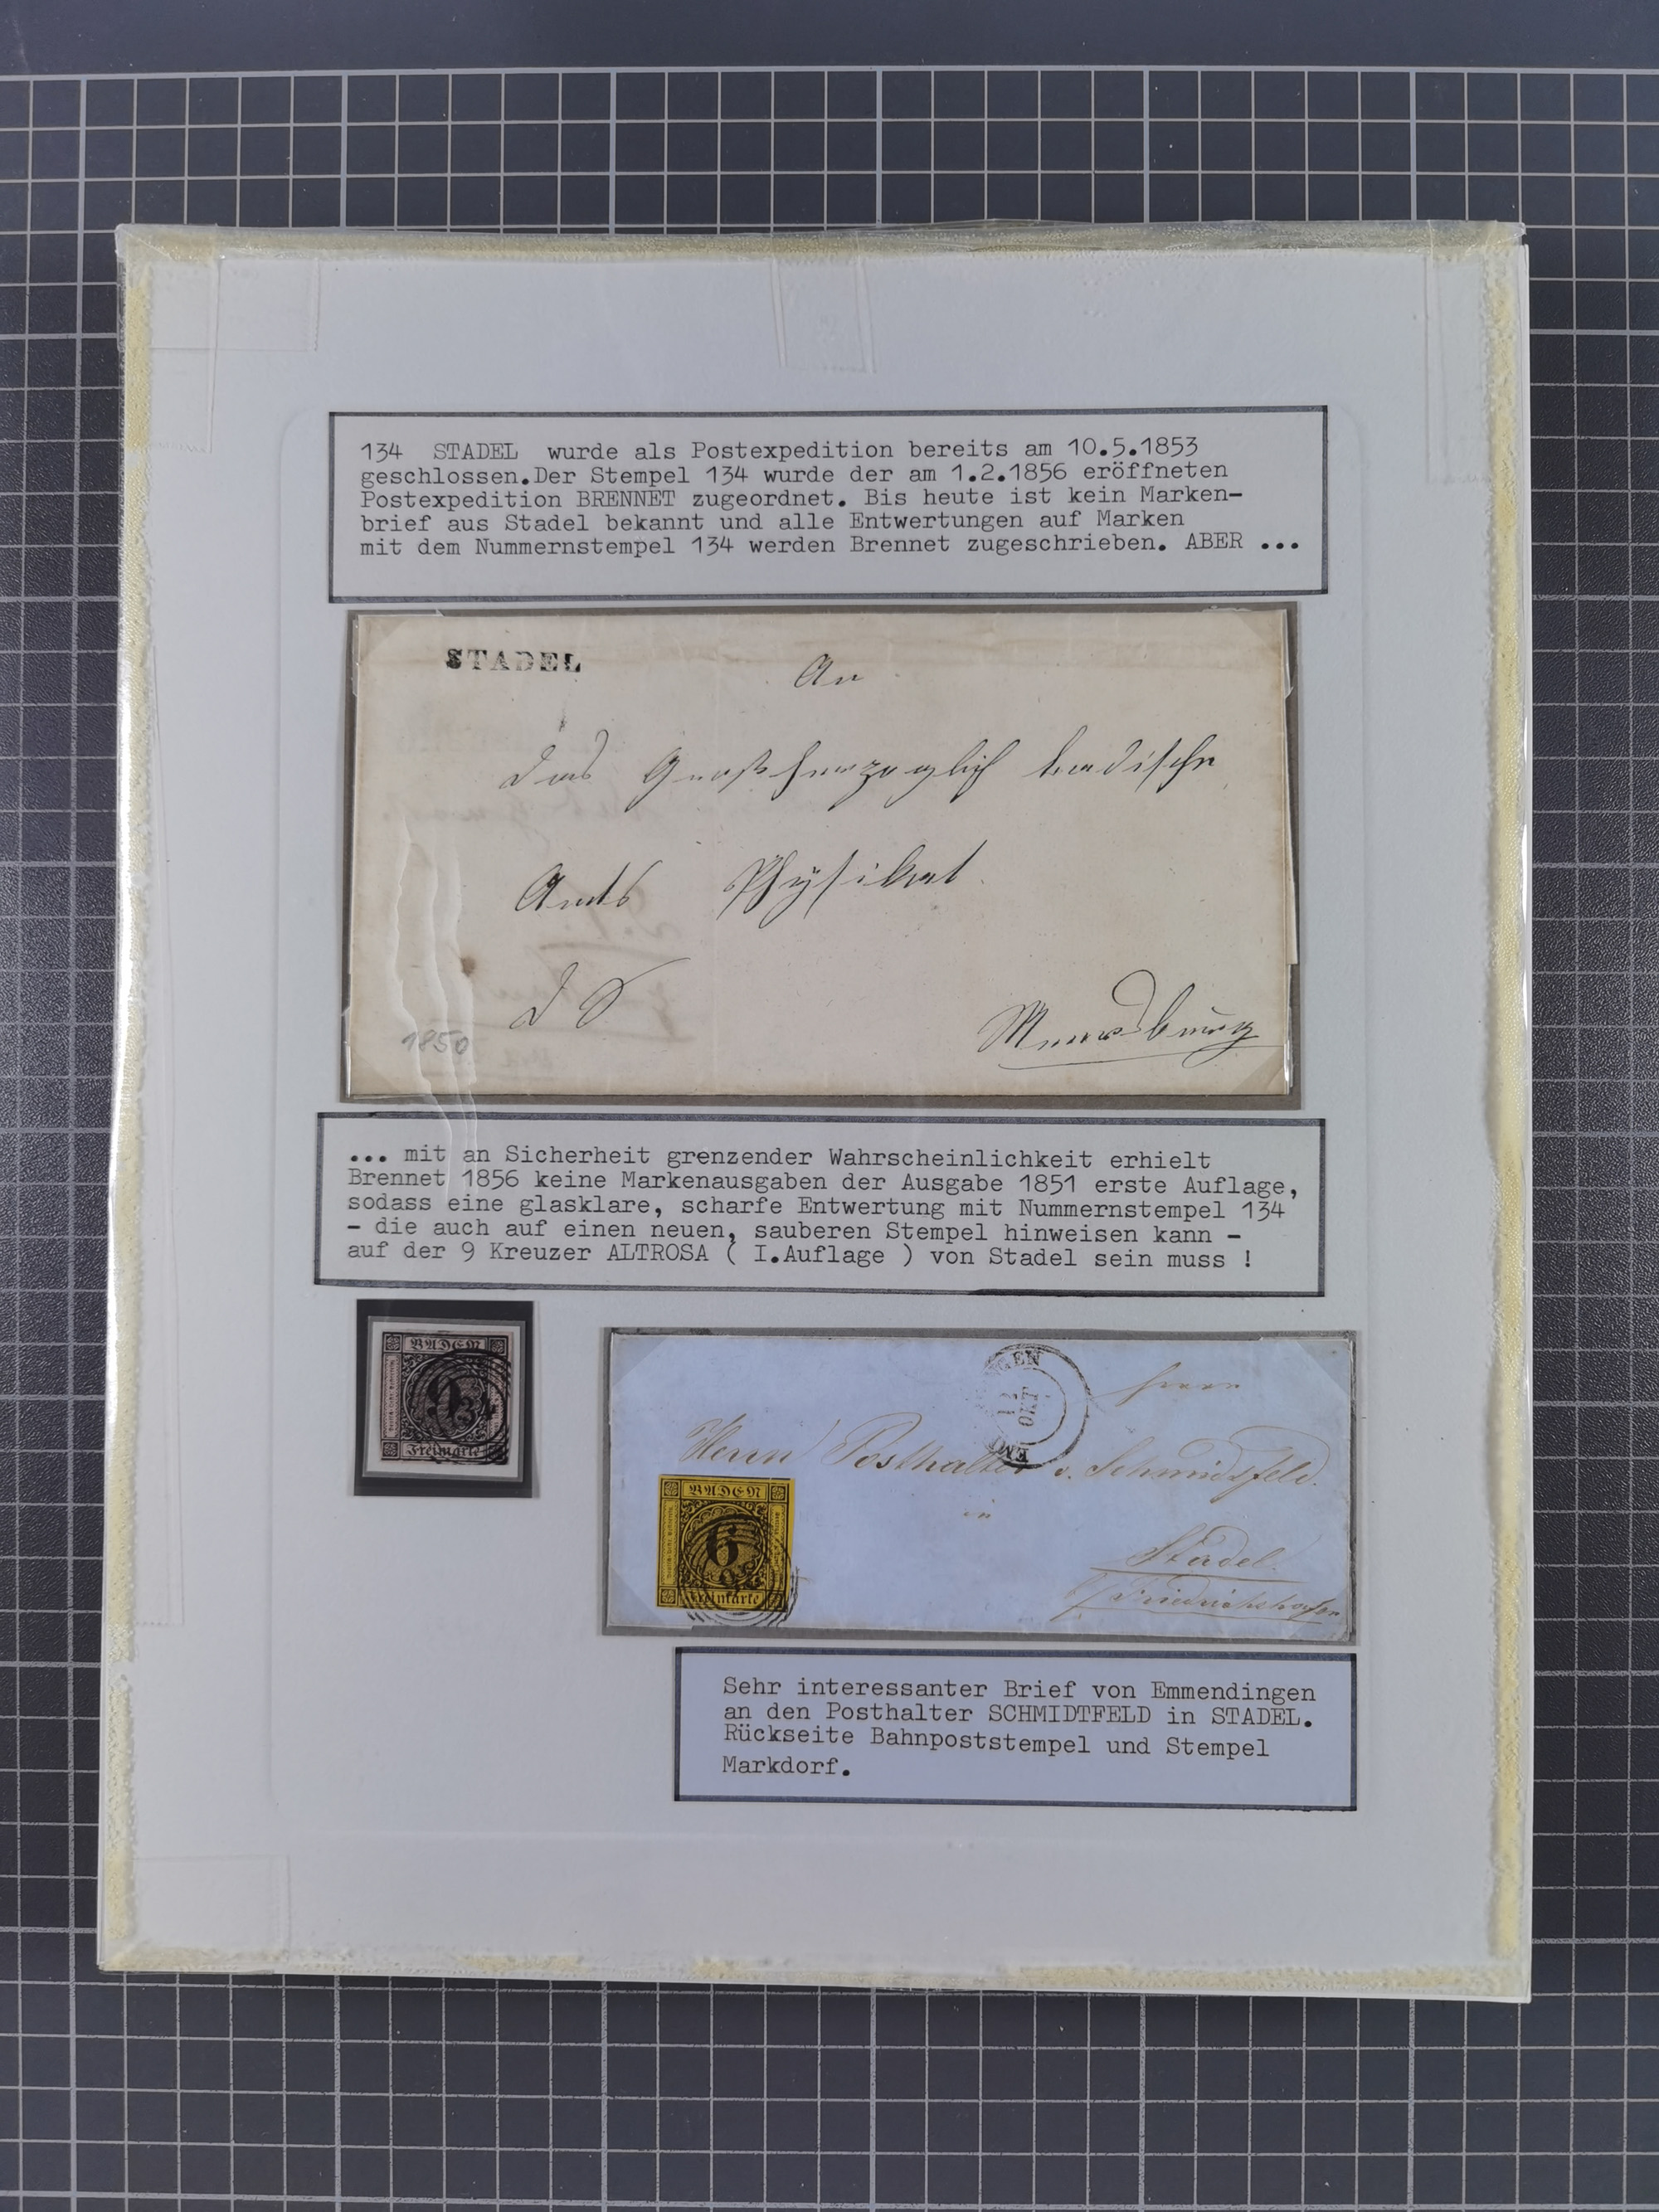 134 STADEL wurde als Postexpedition bereits am 10.5.1853
geschlossen.Der Stempel 134 wurde der am 1.2.1856 eröffneten
Postexpedition BRENNET zugeordnet. Bis heute ist kein Marken-
brief aus Stadel bekannt und alle Entwertungen auf Marken
mit dem Nummernstempel 134 werden Brennet zugeschrieben. ABER ...
STADEL
An
das Großherzoglich badische
Amts Physikat
1850
... mit an Sicherheit grenzender Wahrscheinlichkeit erhielt
Brennet 1856 keine Markenausgaben der Ausgabe 1851 erste Auflage,
sodass eine glasklare, scharfe Entwertung mit Nummernstempel 134
- die auch auf einen neuen, sauberen Stempel hinweisen kann -
auf der 9 Kreuzer ALTROSA ( I.Auflage ) von Stadel sein muss !
BADEN
9
134
Freimarke
OKT
Herrn Posthalter v. Schmidsfeld.
in
Stadel.
b/ Friedrichshafen
BADEN
6
Freimarke
Sehr interessanter Brief von Emmendingen
an den Posthalter SCHMIDTFELD in STADEL.
Rückseite Bahnpoststempel und Stempel
Markdorf.